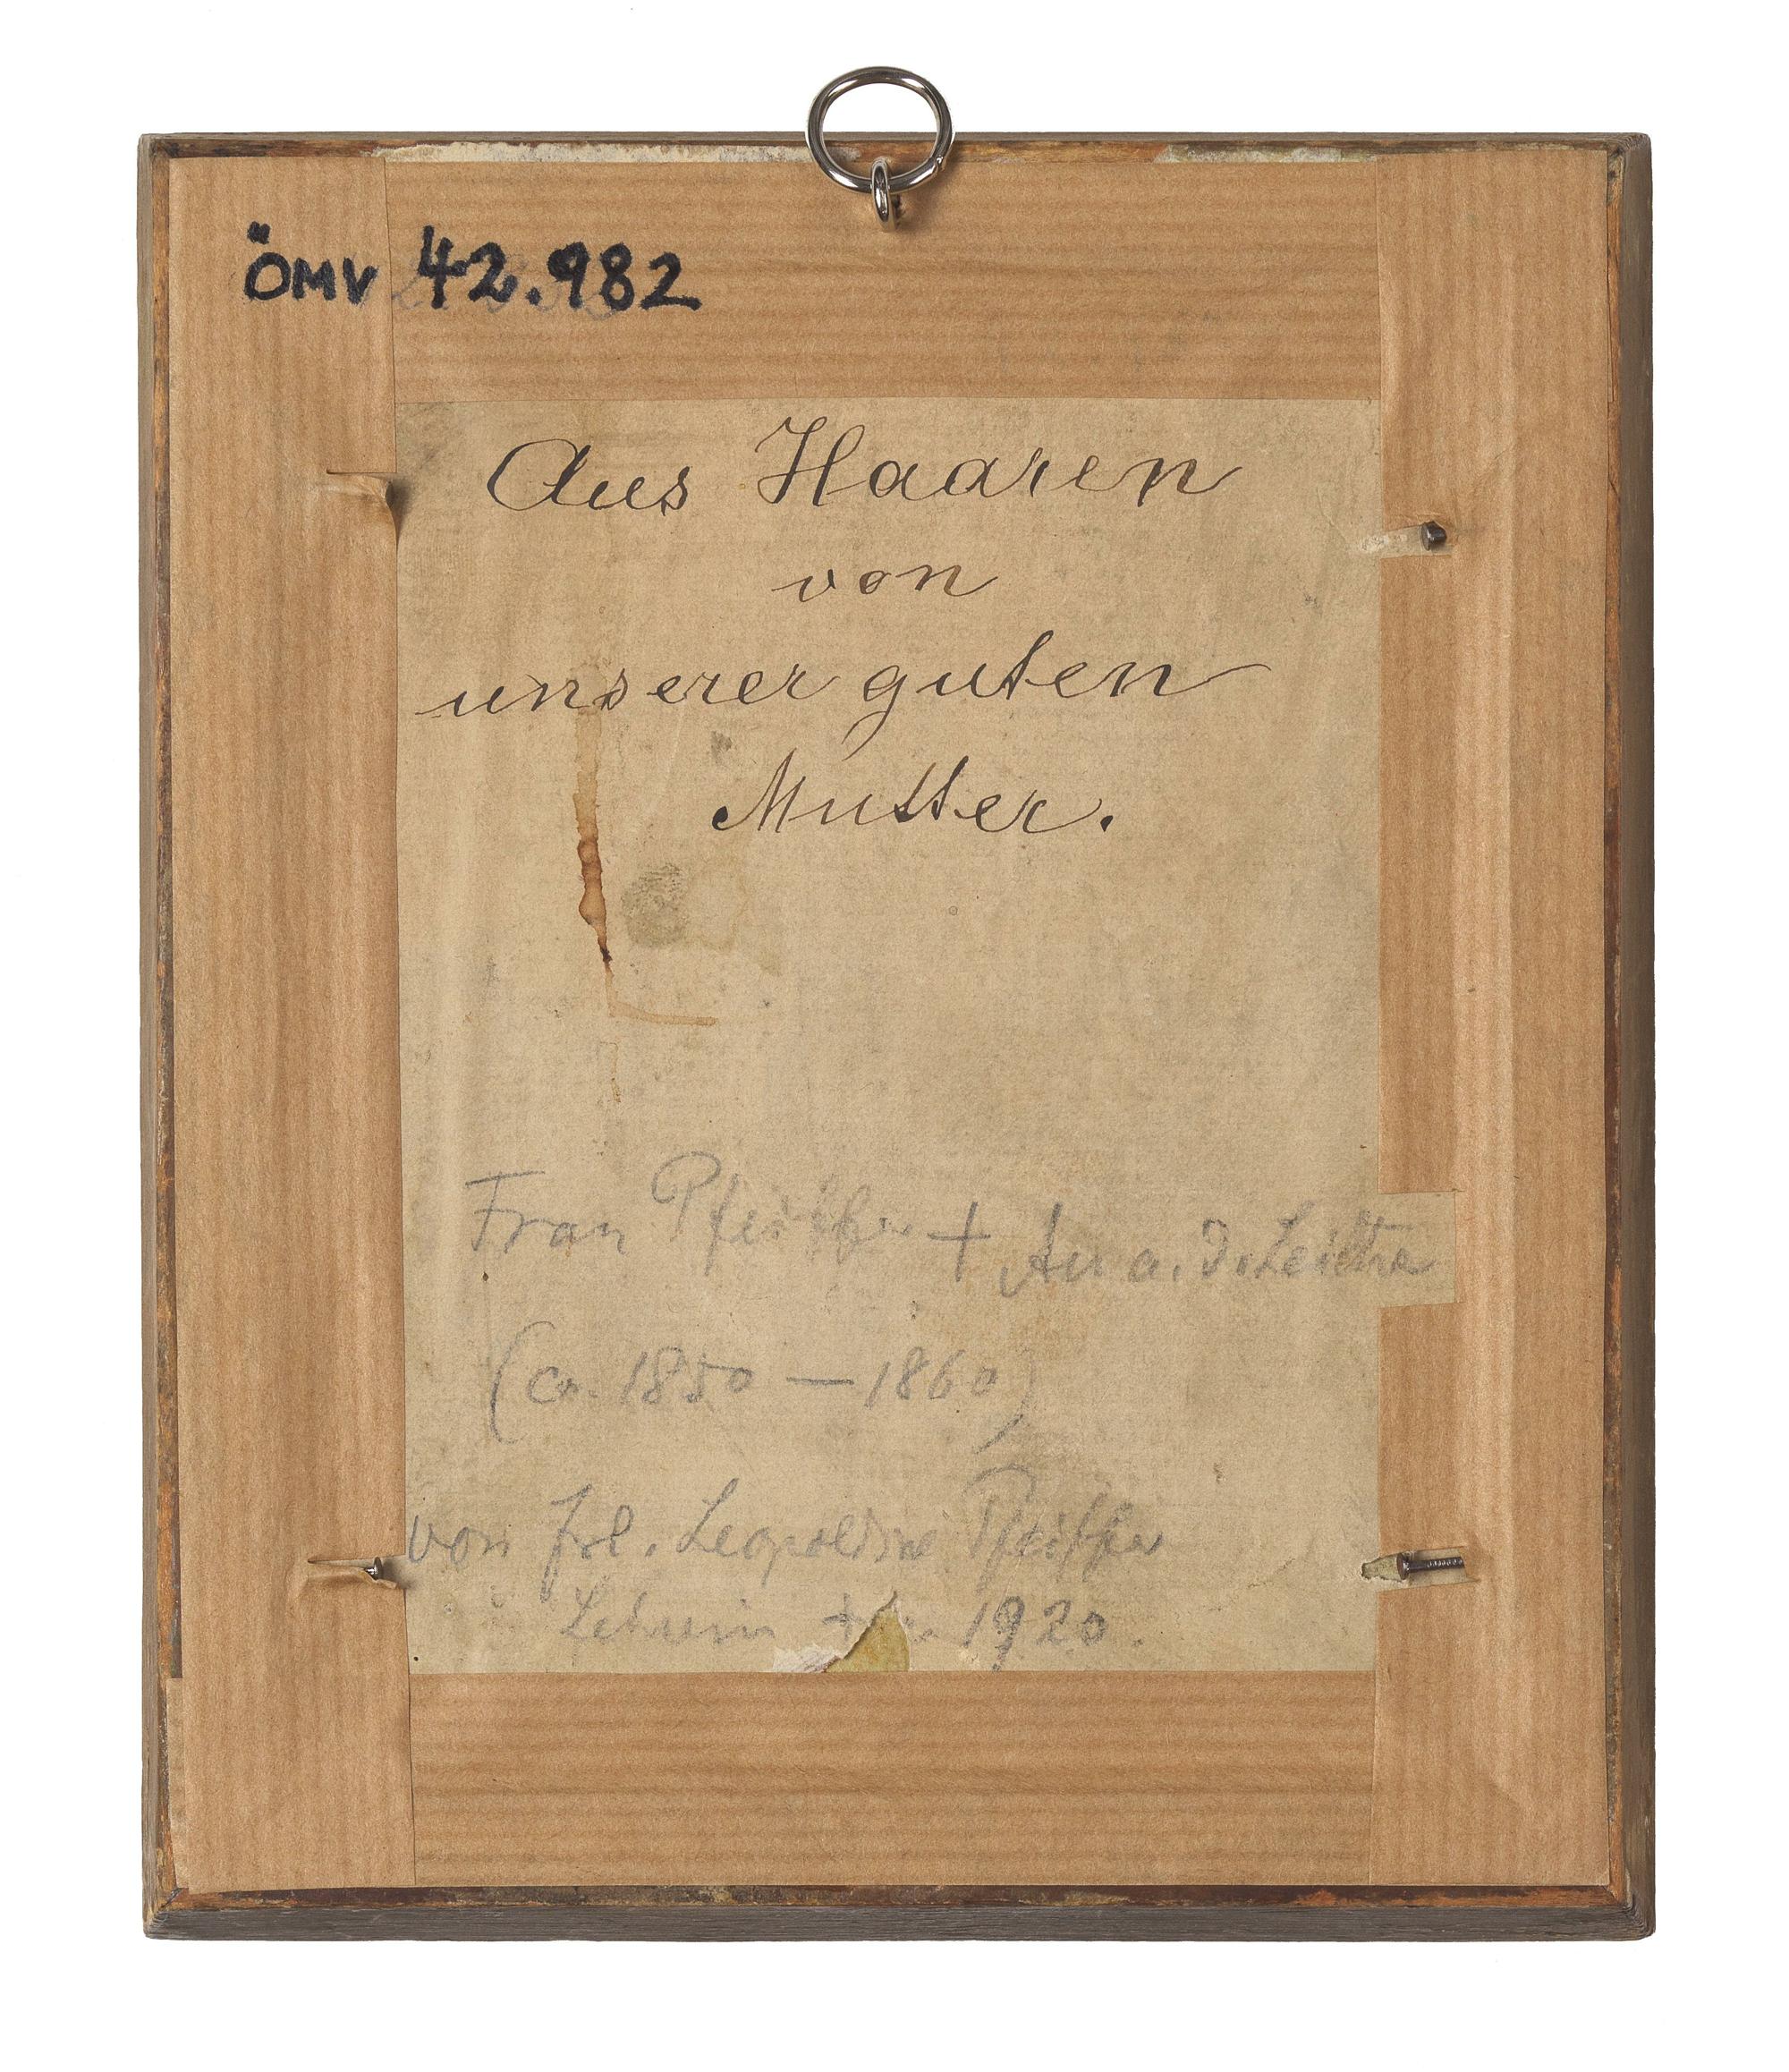 ÖMV 42.982
Aus Haaren
von
unserer guten
Mutter.
Frau Pfeiffer + Au a. d. Leitha
(ca. 1850 — 1860)
von Frl. Leopoldine Pfeiffer
Lehrerin + 1920.